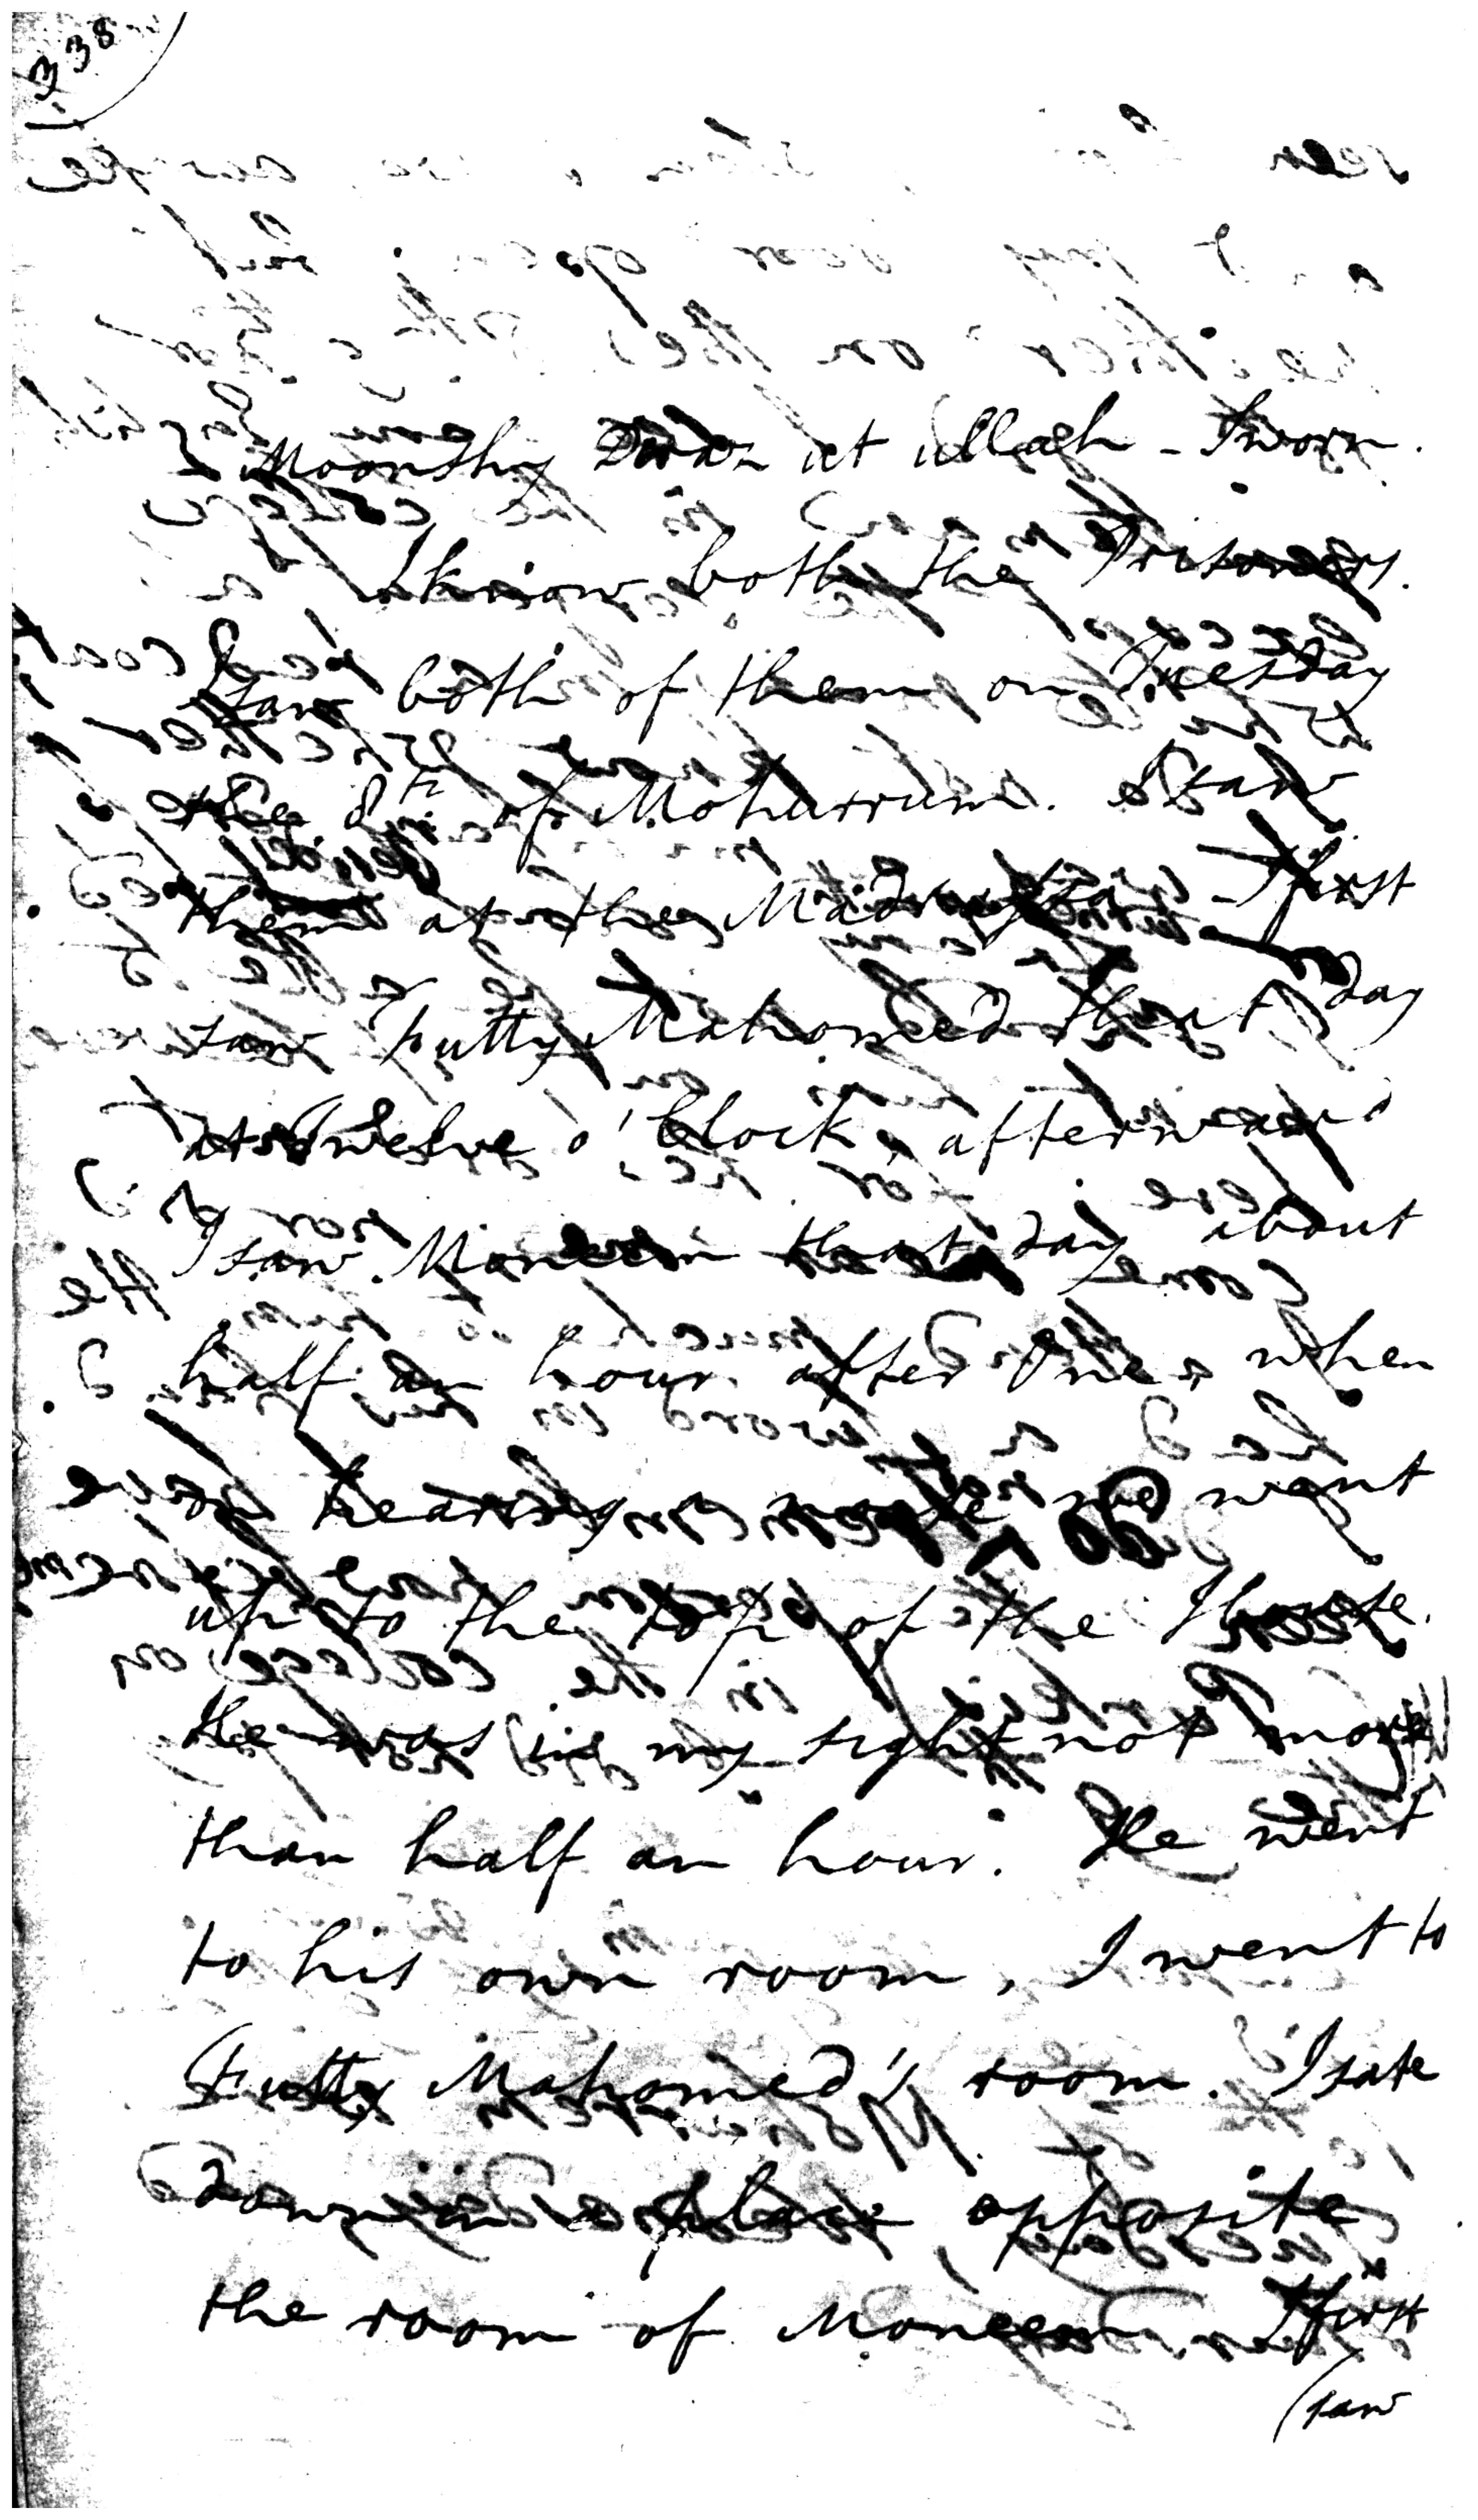 338
Moonshy ut ullah - Sworn.
I know both the Prisoners.
I saw both of them on Tuesday
the 8th of Mohurrum. I saw
them at the Madrussa - I first
saw Futty Mahomed that day
at twelve o'Clock, afterwards
I saw Moneem that day about
half an hour after One, when
we went
up to the top of the House.
He was in my sight not more
than half an hour. He went
to his own room, I went to
Futty Mahomed's room. I sate
down in a place opposite
the room of Moneem I first
(saw